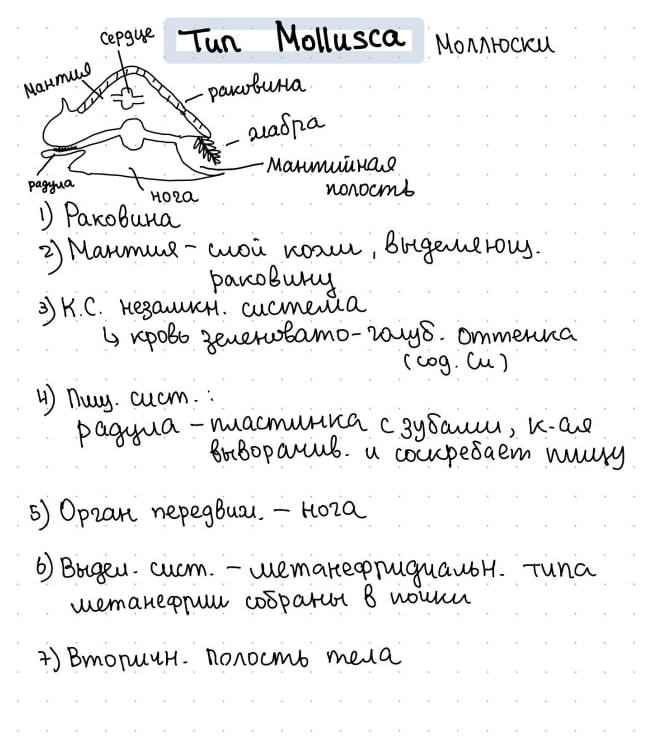 Тип Mollusca Моллюски
сердце
мантия
раковина
жабра
мантийная
полость
радула
нога
1) Раковина
2) Мантия – слой кожи, выделяющ.
раковину
3) К.С. незамкн. система
↳ кровь зеленовато-голуб. оттенка
(сод. Cu)
4) Пищ. сист.:
радула – пластинка с зубами, к-ая
выворачив. и соскребает пищу
5) Орган передвиж. – нога
6) Выдел. сист. – метанефридиальн. типа
метанефрии собраны в почки
7) Вторичн. полость тела